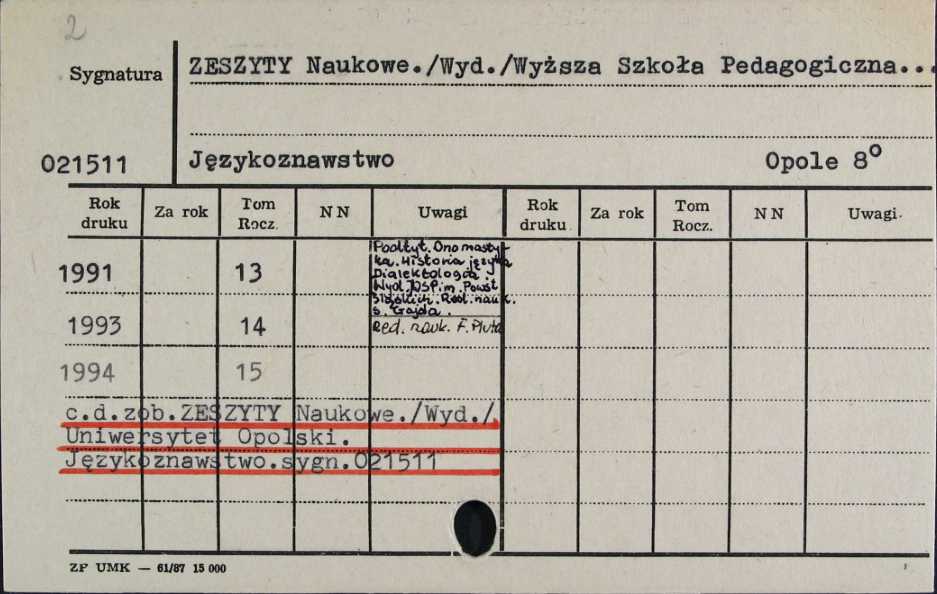 2
Sygnatura
ZESZYTY Naukowe./Wyd./Wyższa Szkoła Pedagogiczna...
021511
Językoznawstwo
Opole 8º
Rok druku
Za rok
Tom Rocz.
N N
Uwagi
Rok druku
Za rok
Tom Rocz.
N N
Uwagi
1991
13
Podtyt. Onomasty-
ka. Historia języka
Dialektologia.
Wyd. WSP. im. Powst
Śląskich. Red. nauk.
S. Gajda.
1993
14
Red. nauk. F. Pluta
1994
15
c.d.zob.ZESZYTY Naukowe./Wyd./
Uniwersytet Opolski.
Językoznawstwo.sygn.021511
ZP UMK — 61/87 15 000